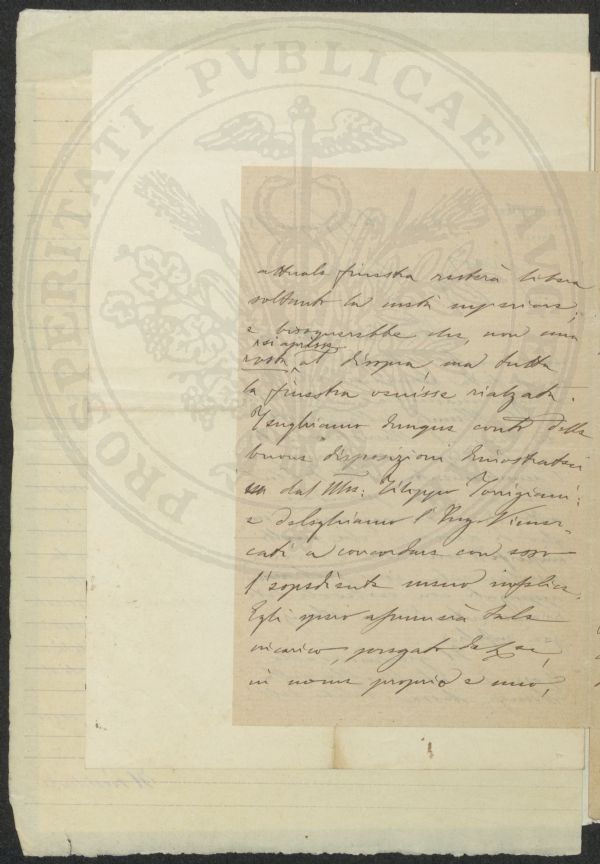 PROSPERITATI PVBLICAE AVGENDAE
attuale finestra resterà libera
soltanto la metà superiore;
e bisognerebbe che, non una
si aprisse
rosta al disopra, ma tutta
la finestra venisse rialzata.
Tenghiamo dunque conto delle
buone disposizioni dimostrateci
dal March: Filippo Torrigiani:
e deleghiamo l'Ing. Vimer-
cati a concordare con esso
l'espediente meno infelice.
Egli spero assumerà tale
incarico, pregato da Lei,
in nome proprio e mio,